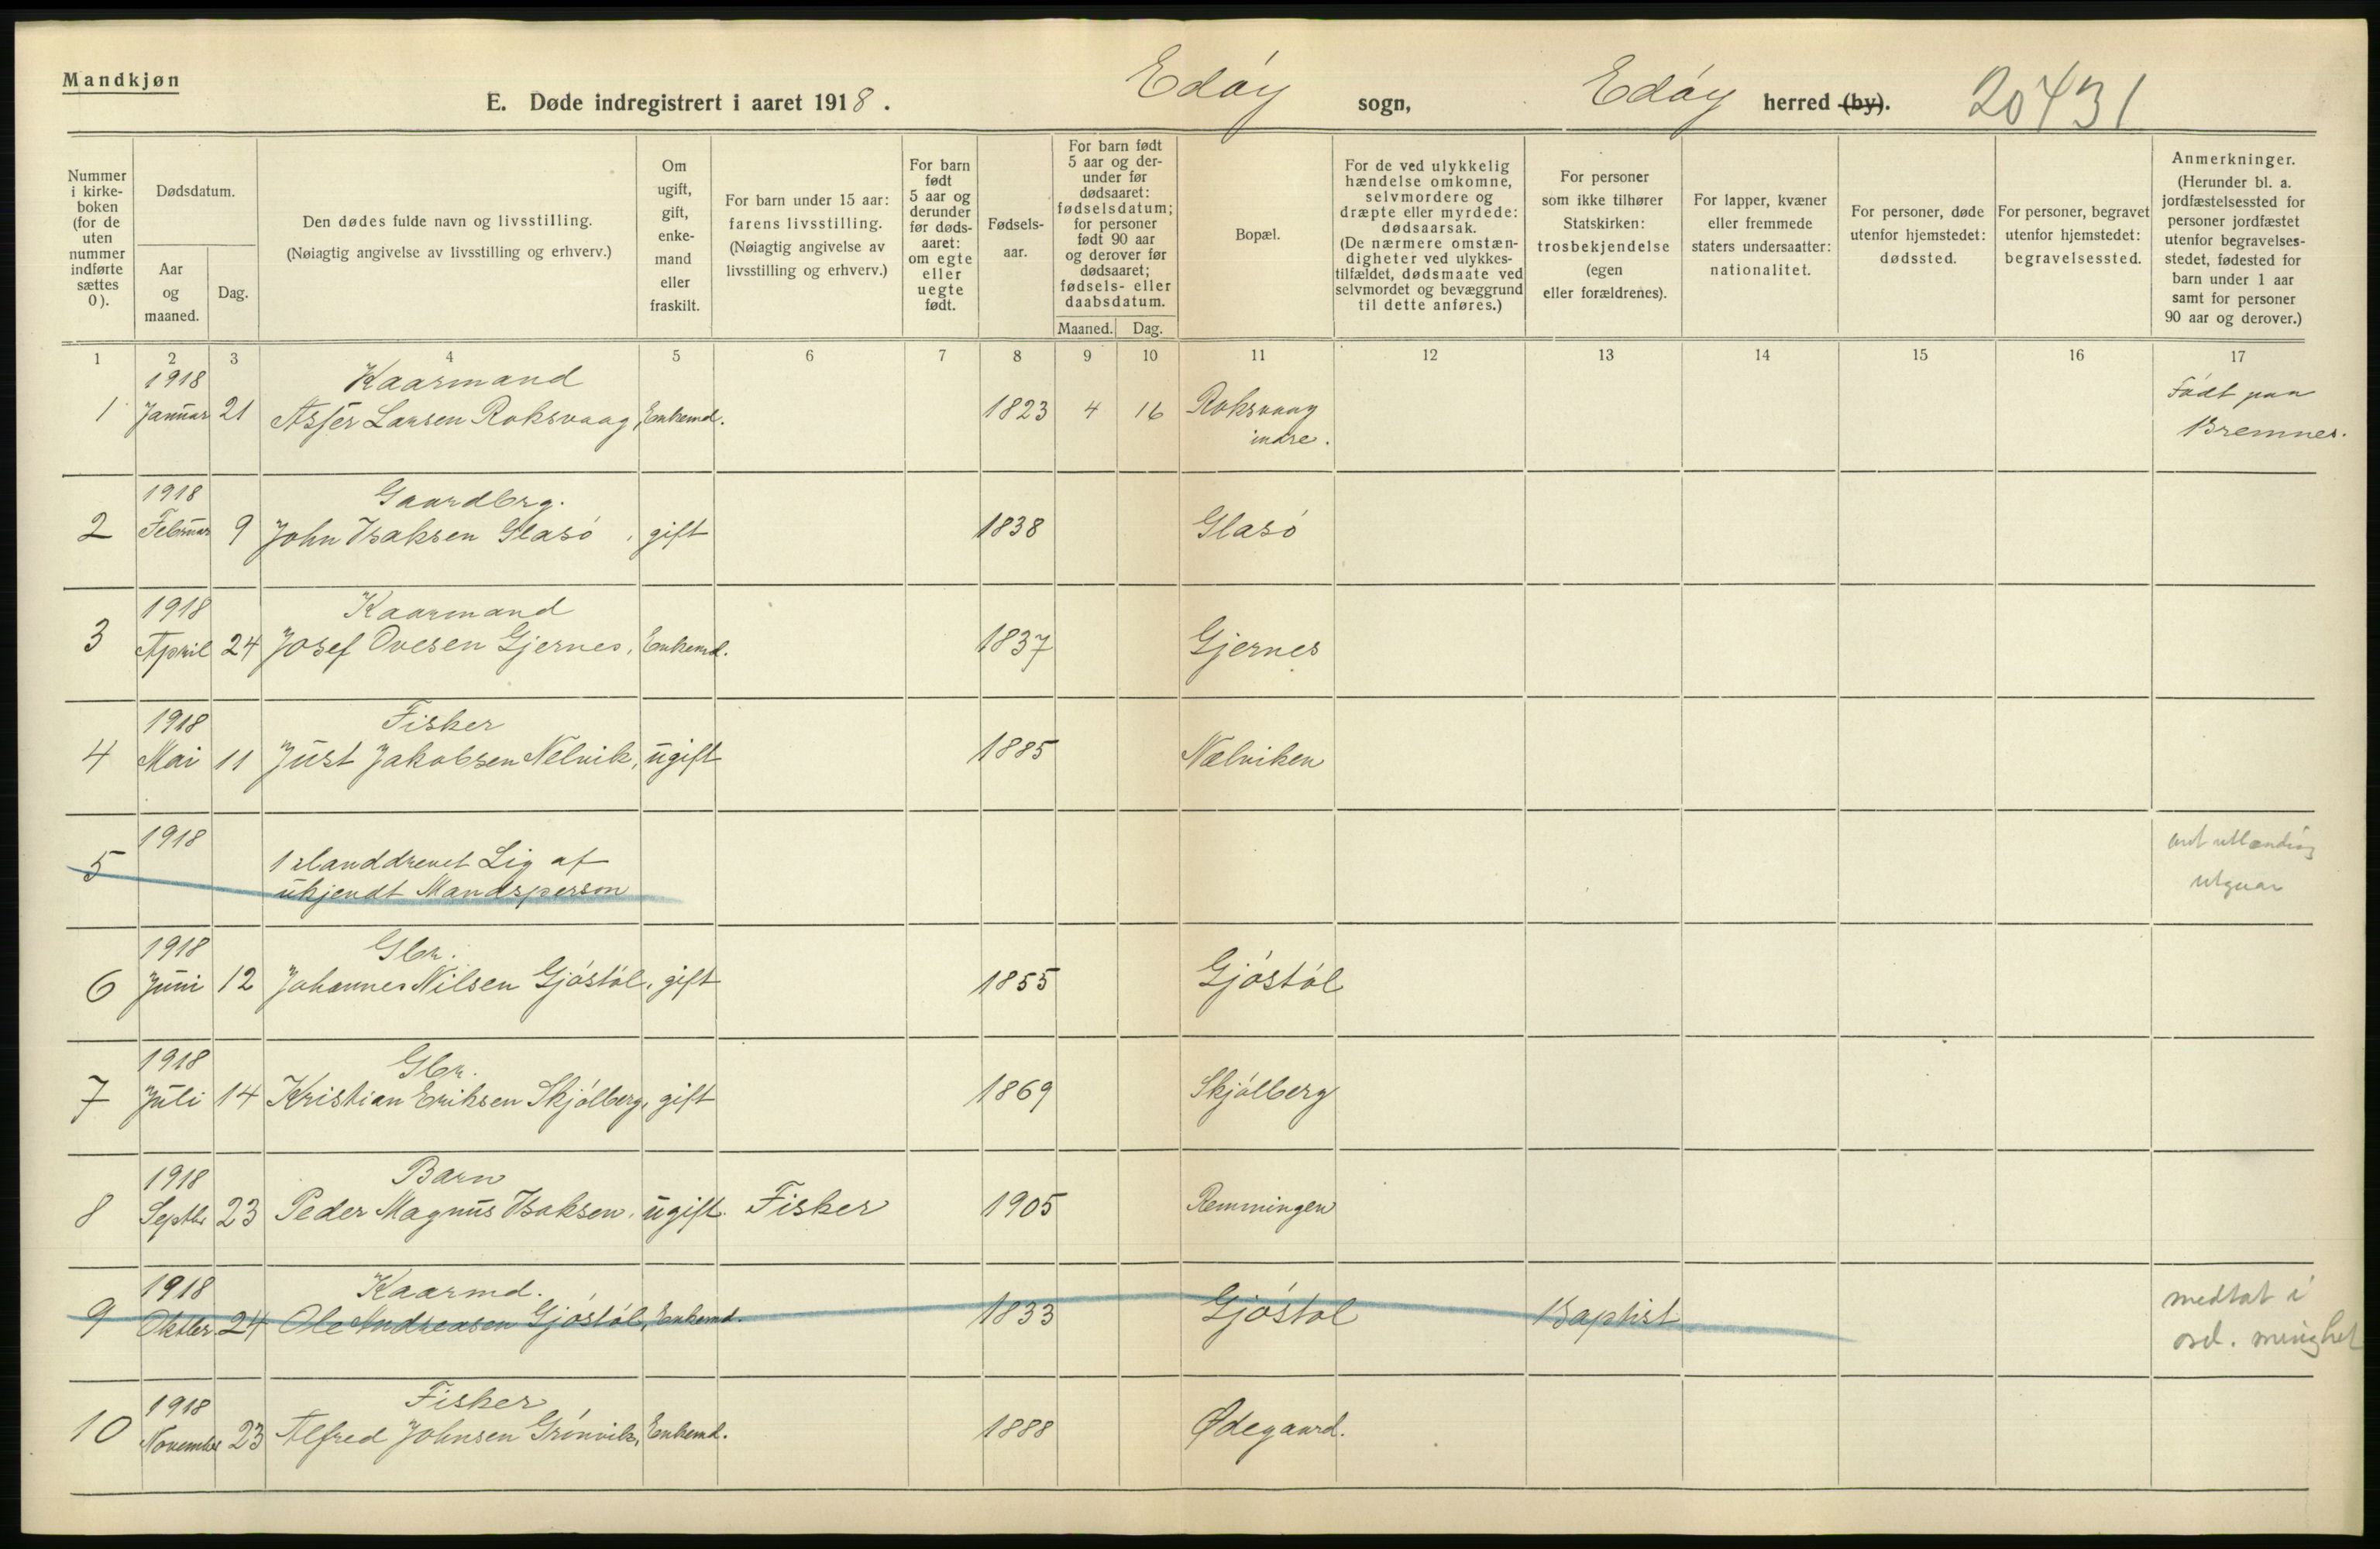 Mandkjøn
E. Døde indregistrert i aaret 1918. Edøy sogn, Edøy herred (by). 20431
Nummer i kirke-boken (for de uten nummer indførte sættes 0).
Dødsdatum.
Aar og maaned.
Dag.
Den dødes fulde navn og livsstilling.
(Nøiagtig angivelse av livsstilling og erhverv.)
Om ugift, gift, enke-mand eller fraskilt.
For barn under 15 aar: farens livsstilling.
(Nøiagtig angivelse av livsstilling og erhverv.)
For barn født 5 aar og derunder før døds-aaret: om egte eller uegte født.
Fødsels-aar.
For barn født 5 aar og der-under før dødsaaret: fødselsdatum; for personer født 90 aar og derover før dødsaaret; fødsels- eller daabsdatum.
Maaned. Dag.
Bopæl.
For de ved ulykkelig hændelse omkomne, selvmordere og dræpte eller myrdede: dødsaarsak.
(De nærmere omstæn-digheter ved ulykkes-tilfældet, dødsmaate ved selvmordet og bevæggrund til dette anføres.)
For personer som ikke tilhører Statskirken: trosbekjendelse (egen eller forældrenes).
For lapper, kvæner eller fremmede staters undersaatter: nationalitet.
For personer, døde utenfor hjemstedet: dødssted.
For personer, begravet utenfor hjemstedet: begravelsessted.
Anmerkninger.
(Herunder bl. a. jordfæstelsessted for personer jordfæstet utenfor begravelses-stedet, fødested for barn under 1 aar samt for personer 90 aar og derover.)
1 2 3 4 5 6 7 8 9 10 11 12 13 14 15 16 17
1918 Kaarmand Født paa
1 Januar 21 Asser Larsen Roksvaag, Enkemd. 1823 4 16 Roksvaag Bremnes.
indre.
1918 Gaardbrg.
2 Februar 9 John Isaksen Glasø, gift 1838 Glasø
1918 Kaarmand
3 April 24 Josef Ovesen Gjernes, Enkemd. 1837 Gjernes
1918 Fisker
4 Mai 11 Just Jakobsen Nelvik, ugift 1885 Nelviken
1918
5 1 ilanddrevet Lig af
ukjendt Mandsperson utgaar
1918 Gbr.
6 Juni 12 Johannes Nilsen Gjøstøl, gift 1855 Gjøstøl
1918 Gbr.
7 Juli 14 Kristian Eriksen Skjølberg, gift 1869 Skjølberg
1918 Barn
8 Septbr 23 Peder Magnus Isaksen, ugift. Fisker 1905 Remmingen
1918 Kaarmd. medtat i
9 Oktber 24 Ole Andreasen Gjøstøl, Enkemd. 1833 Gjøstøl Baptist ord. menighet
1918 Fisker
10 November 23 Alfred Johnsen Grønvik, Enkemd. 1888 Ødegaard.